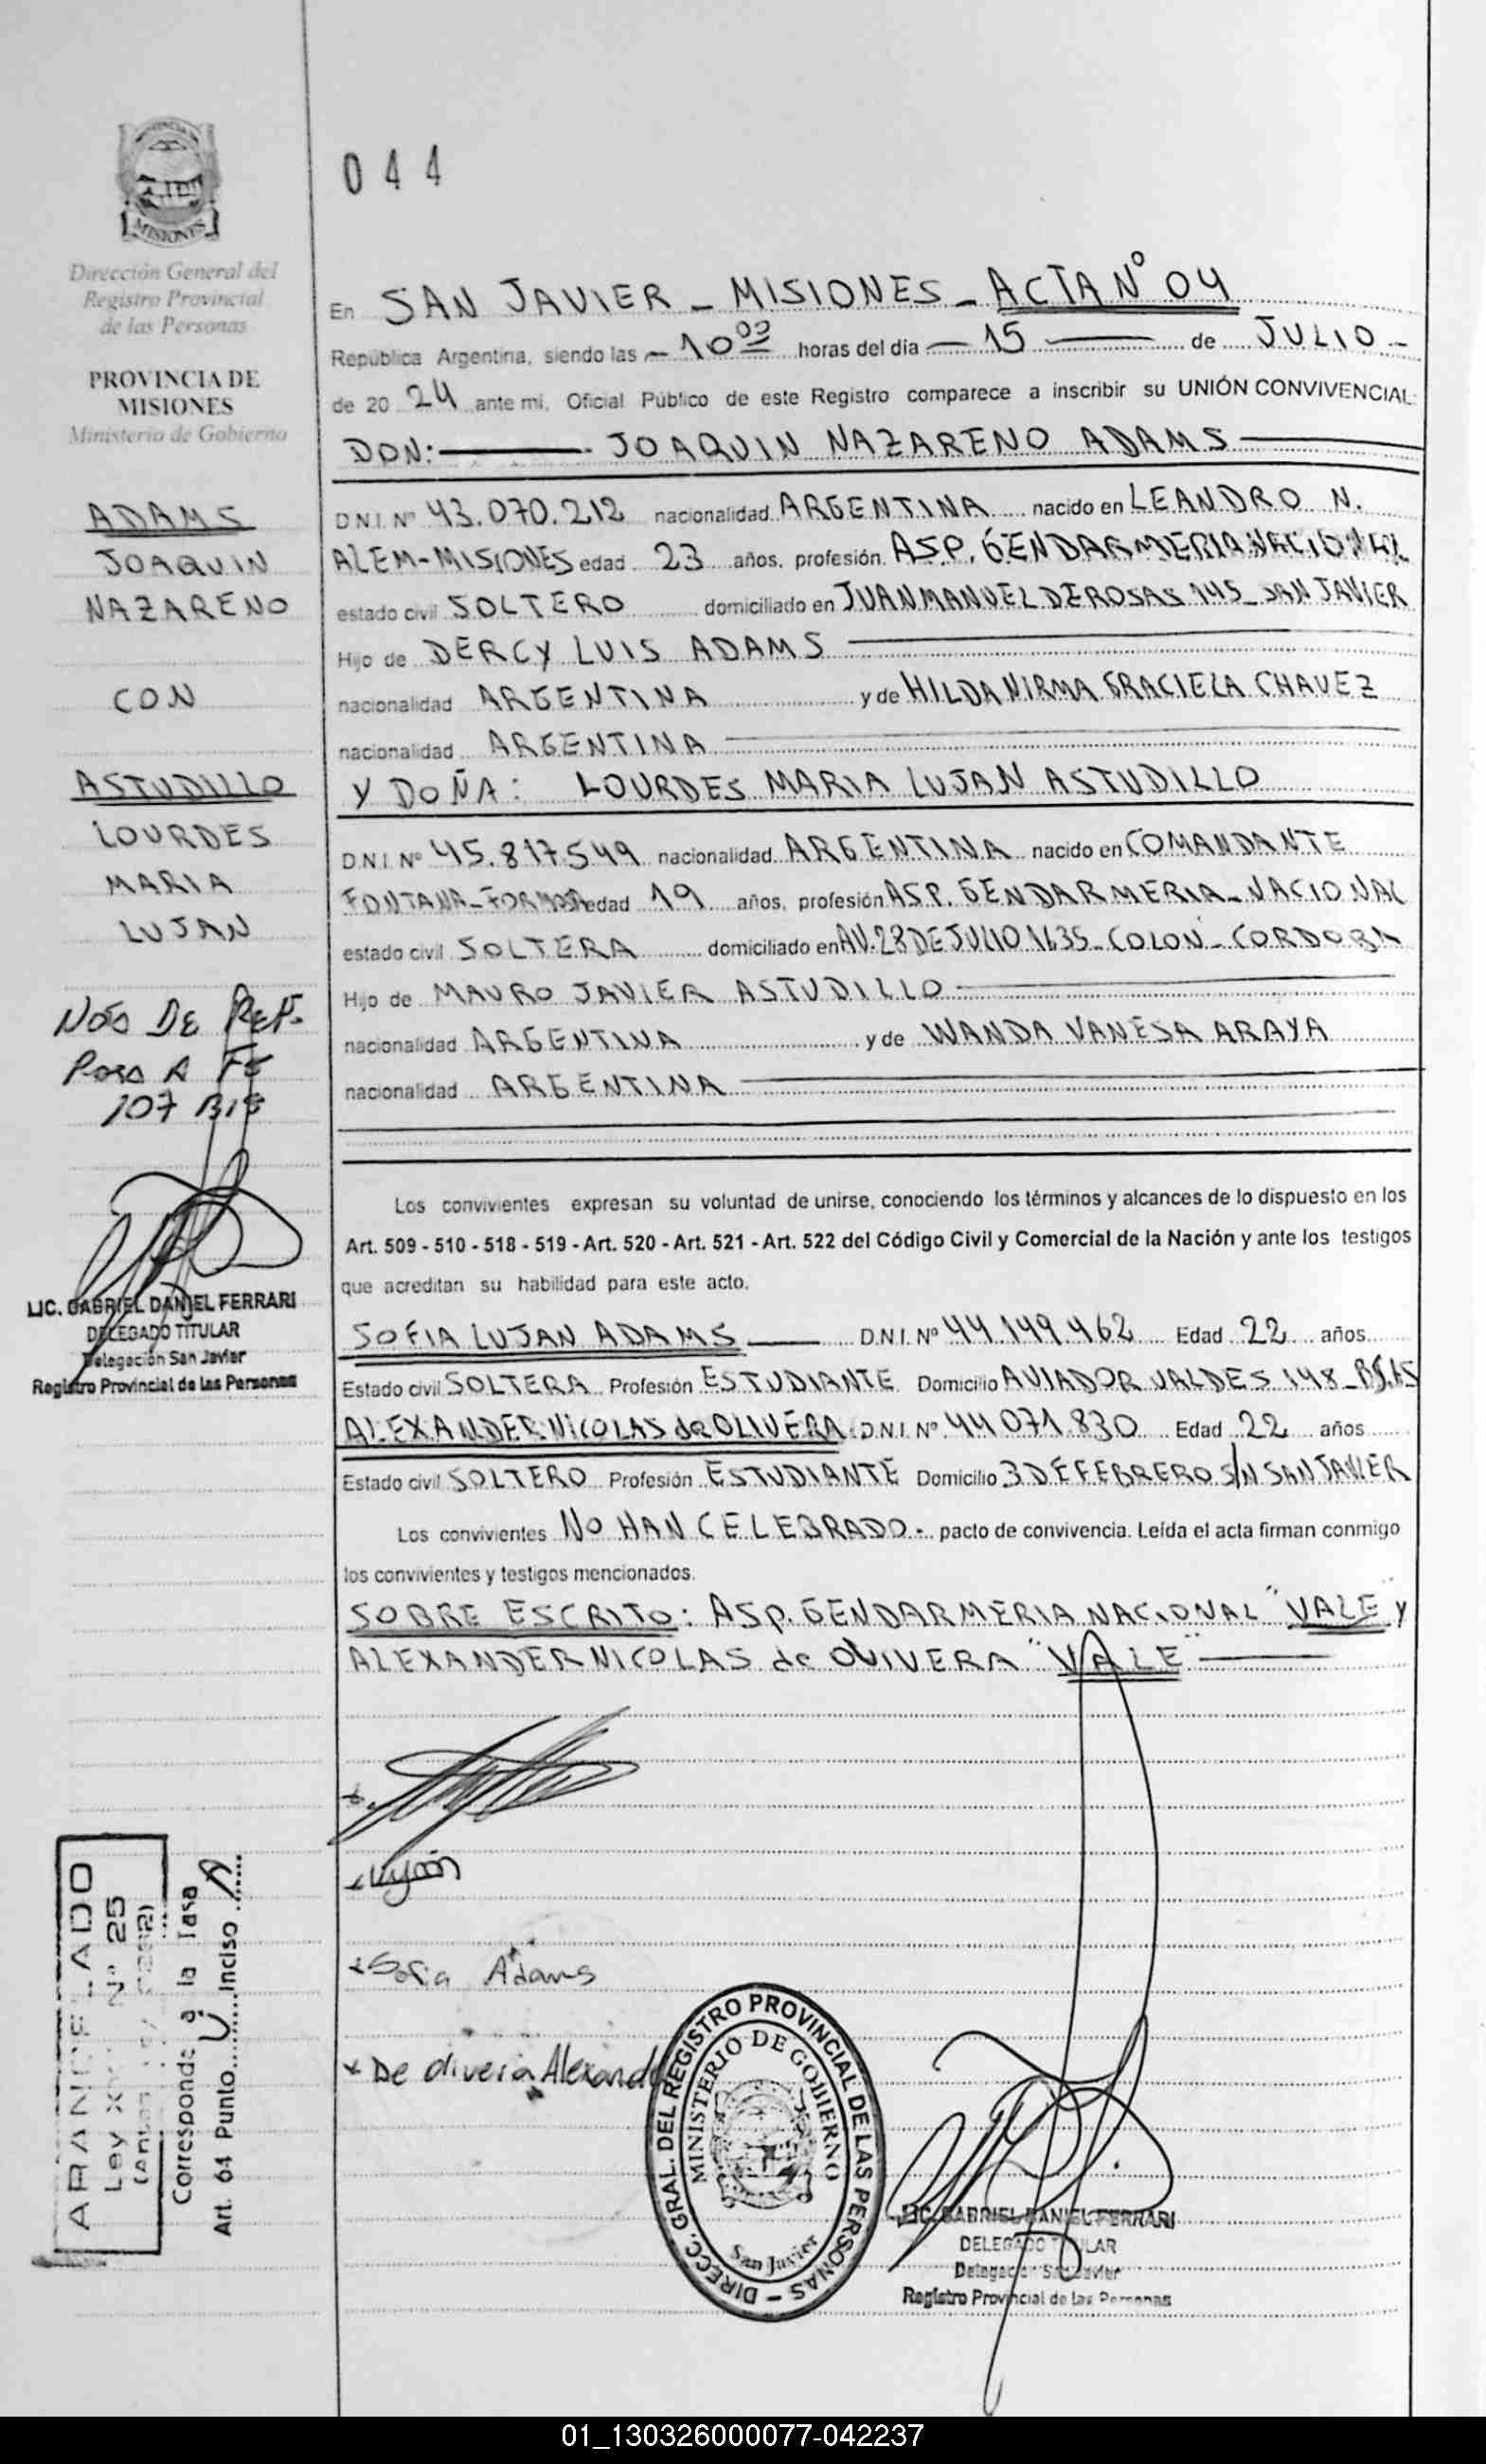 PROVINCIA DE
MISIONES
Dirección General del
Registro Provincial
de las Personas
PROVINCIA DE
MISIONES
Ministerio de Gobierno
ADAMS
JOAQUIN
NAZARENO
CON
ASTUDILLO
LOURDES
MARIA
LUJAN
DE REF.
A
107 BIS
LIC. GABRIEL DANIEL FERRARI
DELEGADO TITULAR
Delegación San Javier
Registro Provincial de las Personas
ARANCELADO
Ley Nº 25
Corresponde a la Tasa
Art. 64 Punto Inciso A
044
En SAN JAVIER - MISIONES - ACTA Nº 04
República Argentina, siendo las - 10 00 horas del día - 15 - de JULIO -
de 20 24 ante mi, Oficial Público de este Registro comparece a inscribir su UNIÓN CONVIVENCIAL:
DON: - JOAQUIN NAZARENO ADAMS
D.N.I. Nº 43.070.212 nacionalidad ARGENTINA nacido en LEANDRO N.
ALEM-MISIONES edad 23 años, profesión ASP. GENDARMERIA NACIONAL
estado civil SOLTERO domiciliado en JUAN MANUEL DE ROSAS 145 - SAN JAVIER
Hijo de DERCY LUIS ADAMS
nacionalidad ARGENTINA y de HILDA NIRMA GRACIELA CHAVEZ
nacionalidad ARGENTINA
Y DOÑA: LOURDES MARIA LUJAN ASTUDILLO
D.N.I. Nº 45.817.549 nacionalidad ARGENTINA nacido en COMANDANTE
FONTANA-FORMOSA edad 19 años, profesión ASP. GENDARMERIA - NACIONAL
estado civil SOLTERA domiciliado en AV. 28 DE JULIO 1635 - COLON - CORDOBA
Hijo de MAURO JAVIER ASTUDILLO
nacionalidad ARGENTINA y de WANDA VANESA ARAYA
nacionalidad ARGENTINA
Los convivientes expresan su voluntad de unirse, conociendo los términos y alcances de lo dispuesto en los
Art. 509 - 510 - 518 - 519 - Art. 520 - Art. 521 - Art. 522 del Código Civil y Comercial de la Nación y ante los testigos
que acreditan su habilidad para este acto.
SOFIA LUJAN ADAMS D.N.I. Nº 44.149.462 Edad 22 años
Estado civil SOLTERA Profesión ESTUDIANTE Domicilio AVIADOR VALDES 148 - BS.AS
ALEXANDER NICOLAS de OLIVERA D.N.I. Nº 44.071.830 Edad 22 años
Estado civil SOLTERO Profesión ESTUDIANTE Domicilio 3 DE FEBRERO S/N SAN JAVIER
Los convivientes NO HAN CELEBRADO - pacto de convivencia. Leída el acta firman conmigo
los convivientes y testigos mencionados.
SOBRE ESCRITO: ASP. GENDARMERIA NACIONAL "VALE" y
ALEXANDER NICOLAS de OLIVERA "VALE"
Luján
Sofia Adams
De olivera Alexand
DIRECC. GRAL. DEL REGISTRO PROVINCIAL DE LAS PERSONAS -
MINISTERIO DE GOBIERNO
San Javier
LIC. GABRIEL DANIEL FERRARI
DELEGADO TITULAR
Delegación San Javier
Registro Provincial de las Personas
01_130326000077-042237